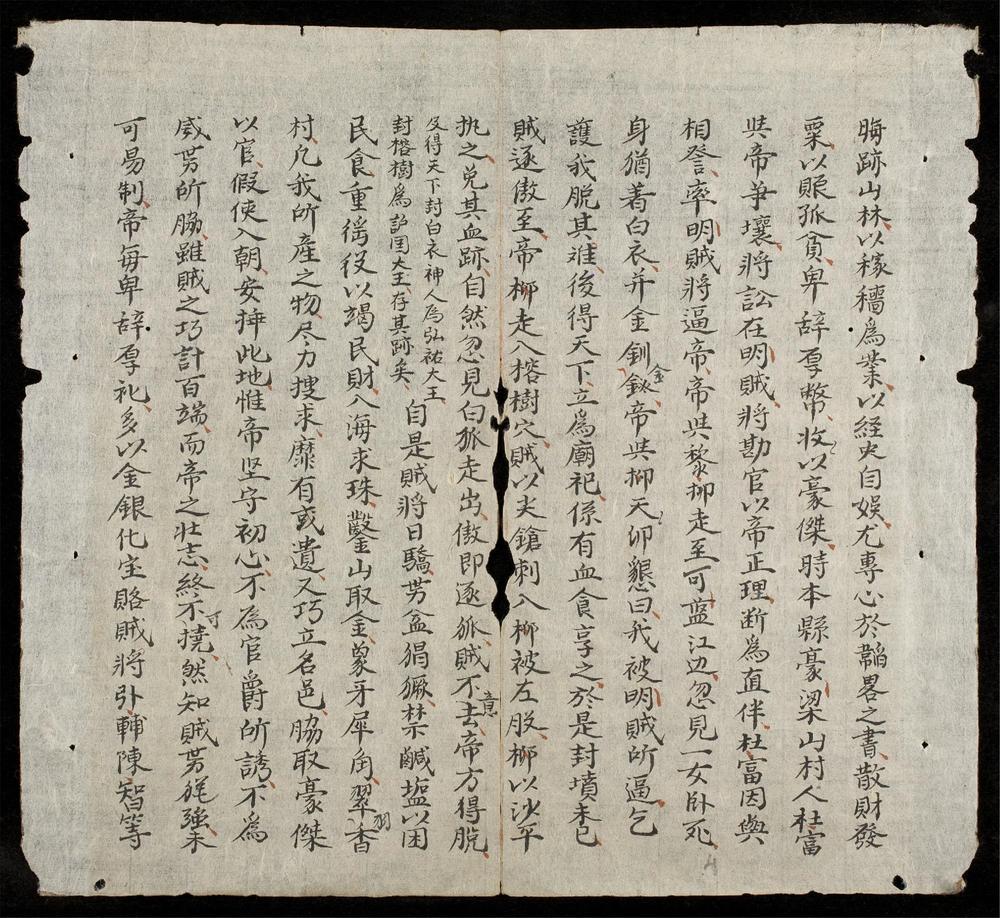 晦跡山林以稼穡為業以経史自娛尤專心於韜畧之書散財發
粟以賑孤貧卑辞厚幣收以豪傑時本縣豪梁山村人杜富
與帝爭壤將訟在明賊將勘官以帝正理断為直伴杜富因與
相詧率明賊將逼帝帝與黎柳走至可藍江边忽見一女卧死
身猶着白衣并金釧金釵帝與柳天卯懇曰我被明賊所逼乞
護我脫其难後得天下立為廟祀係有血食享之於是封墳未已
賊逐傲至帝柳走入榕樹穴賊以尖鎗刺入柳被左股柳以沙平
执之免其血跡自然忽見白狐走出傲即逐狐賊不意去帝方得脫
及得天下封白衣神人為弘祐大王
封榕樹為護囯大王存其跡矣
自是賊將日驕势益猖獗禁鹹塩以困
民食重徭役以竭民財入海求珠鑿山取金象牙犀角翠羽香
村凡我所產之物尽力搜求靡有或遺又巧立名邑脇取豪傑
以官假使入朝安揷此地惟帝坚守初心不為官爵所誘不為
威势所脇雖賊之巧計百端而帝之壮志終不可撓然知賊势强未
可易制帝每卑辞厚礼多以金銀化宝賂賊將引輔陳智等